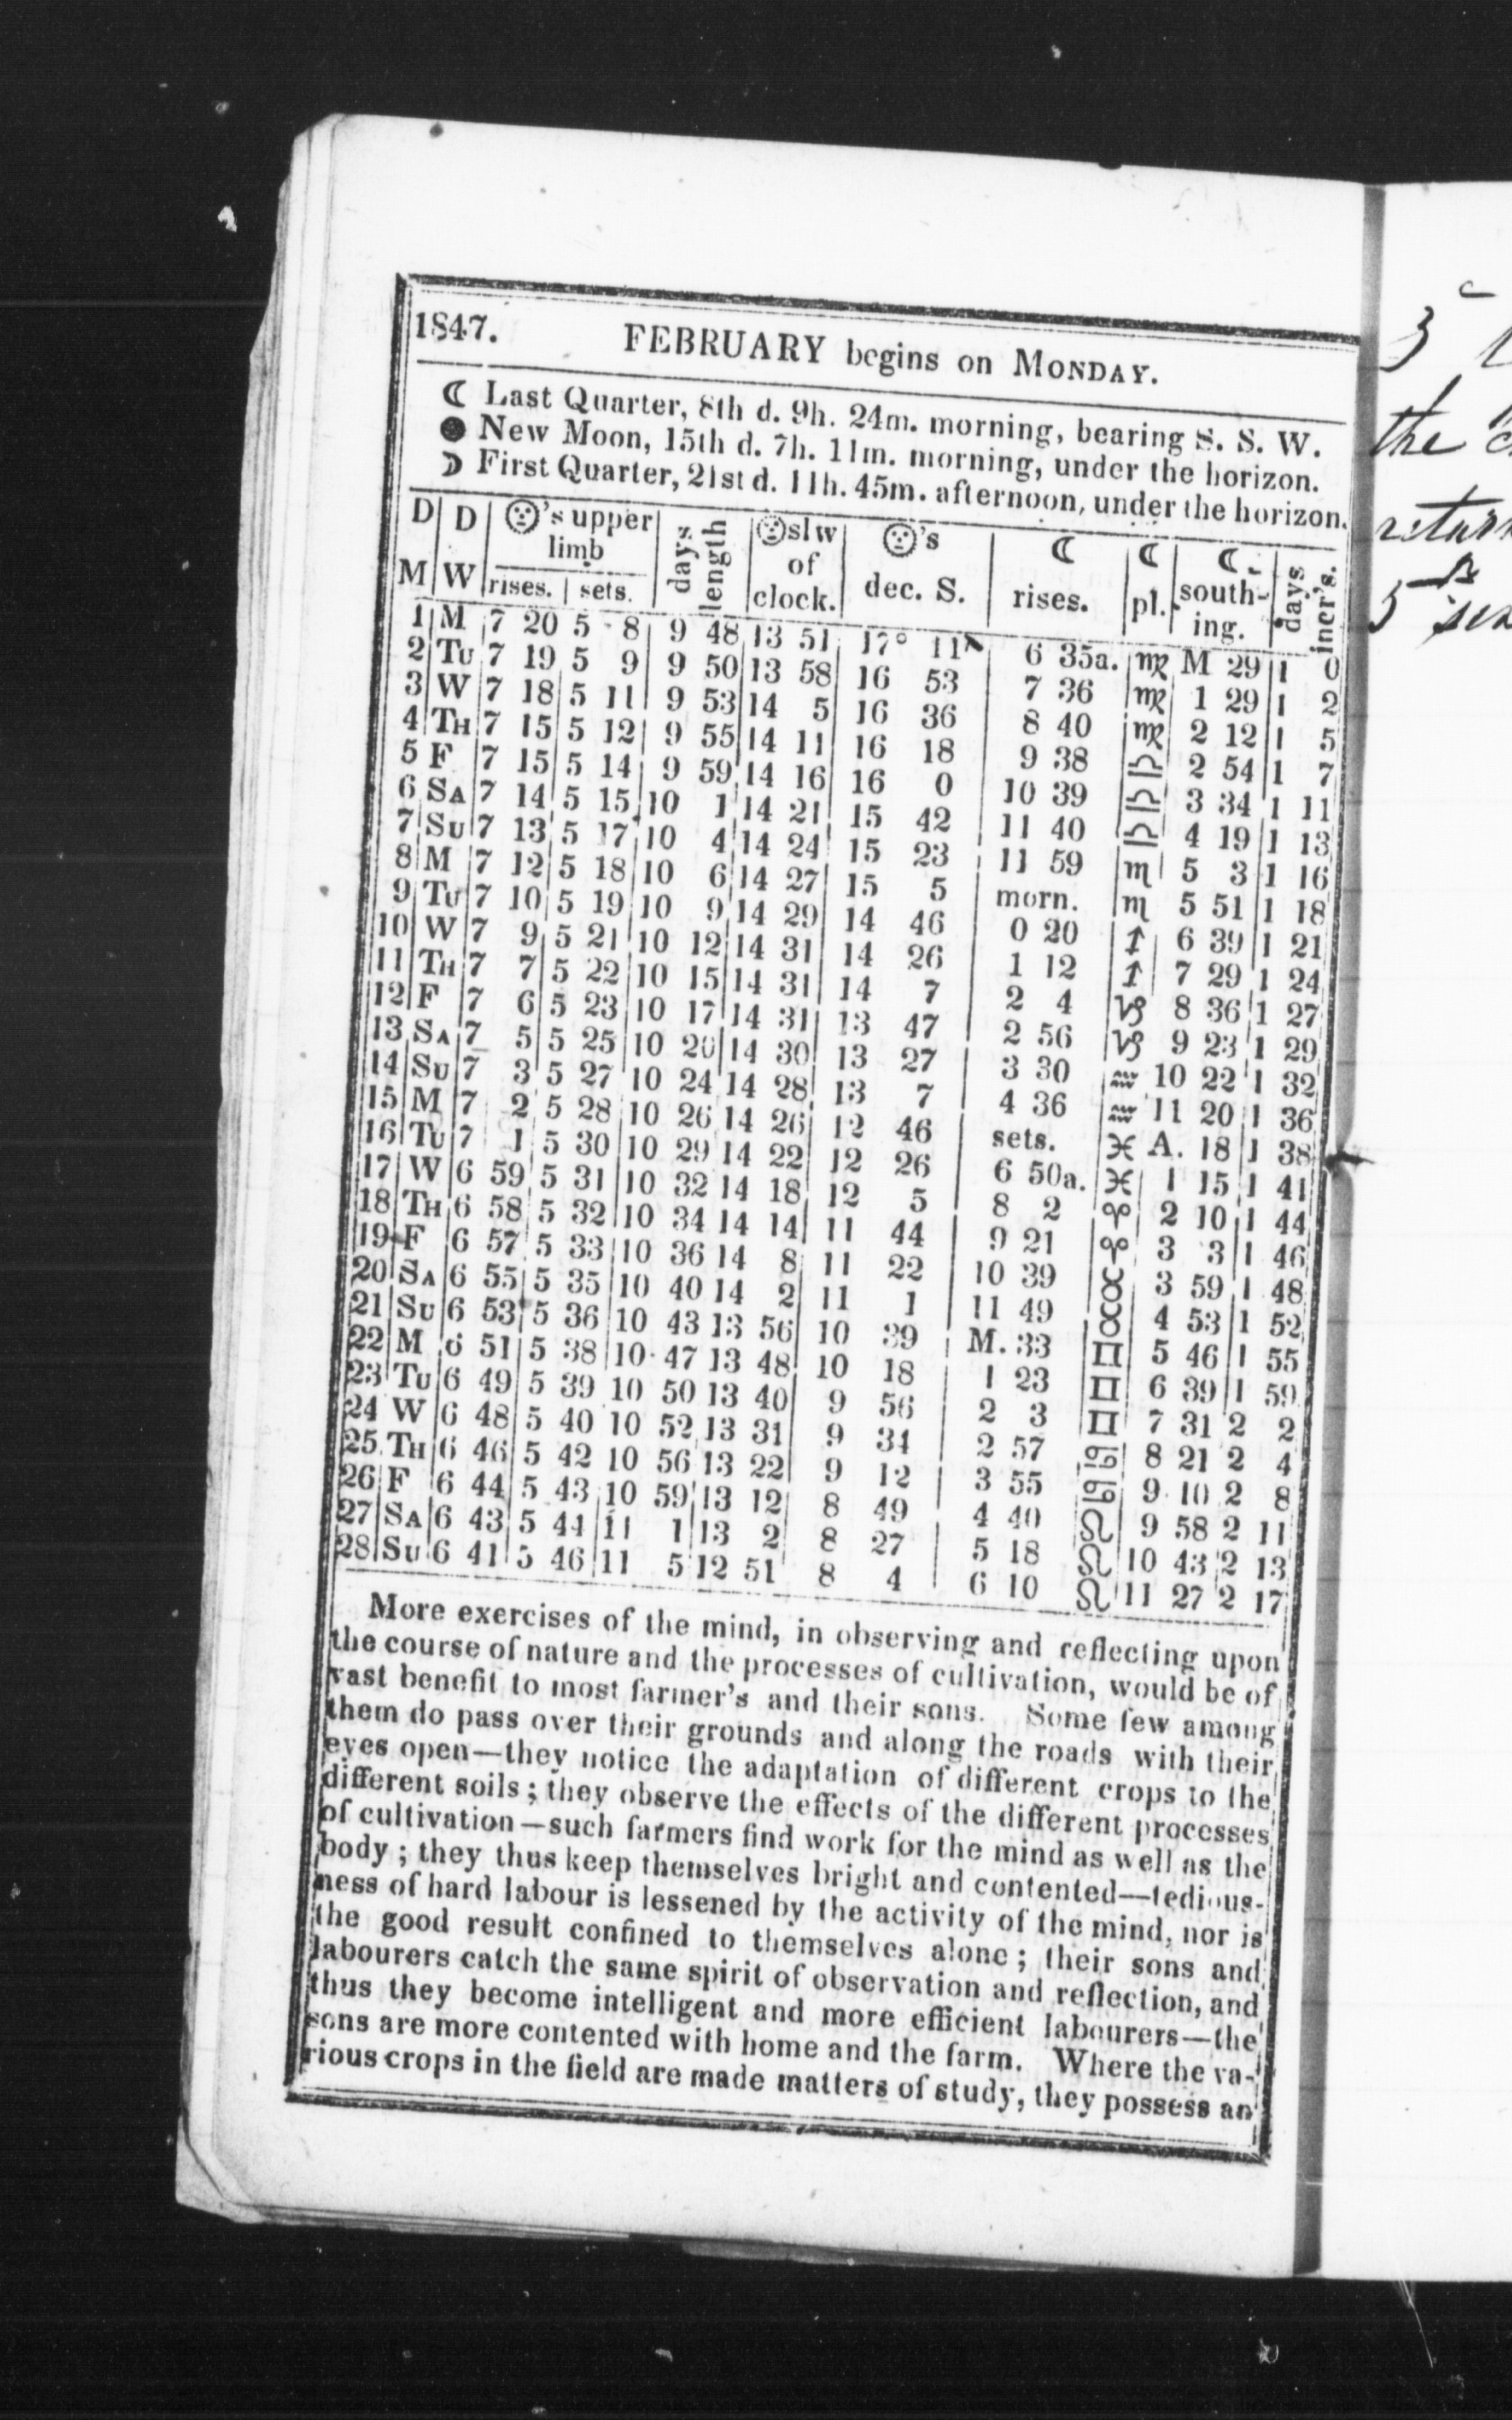 1847. FEBRUARY begins on MONDAY.
☾ Last Quarter, 8th d. 9h. 24m. morning, bearing S. S. W.
● New Moon, 15th d. 7h. 11m. morning, under the horizon.
☽ First Quarter, 21st d. 11h. 45m. afternoon, under the horizon.
D M | D W | ☉'s upper limb rises. | sets. | days length | ☉ slw of clock. | ☉'s dec. S. | ☾ rises. | ☾ pl. | ☾ south-ing. | days incr's.
1 M 7 20 5 8 9 48 13 51 17° 11' 6 35a. ♍ M 29 1 0
2 TU 7 19 5 9 9 50 13 58 16 53 7 36 ♍ 1 29 1 2
3 W 7 18 5 11 9 53 14 5 16 36 8 40 ♍ 2 12 1 5
4 TH 7 15 5 12 9 55 14 11 16 18 9 38 ♎ 2 54 1 7
5 F 7 15 5 14 9 59 14 16 16 0 10 39 ♎ 3 34 1 11
6 SA 7 14 5 15 10 1 14 21 15 42 11 40 ♎ 4 19 1 13
7 SU 7 13 5 17 10 4 14 24 15 23 11 59 ♏ 5 3 1 16
8 M 7 12 5 18 10 6 14 27 15 5 morn. ♏ 5 51 1 18
9 TU 7 10 5 19 10 9 14 29 14 46 0 20 ♐ 6 39 1 21
10 W 7 9 5 21 10 12 14 31 14 26 1 12 ♐ 7 29 1 24
11 TH 7 7 5 22 10 15 14 31 14 7 2 4 ♑ 8 36 1 27
12 F 7 6 5 23 10 17 14 31 13 47 2 56 ♑ 9 23 1 29
13 SA 7 5 5 25 10 20 14 30 13 27 3 30 ♒ 10 22 1 32
14 SU 7 3 5 27 10 24 14 28 13 7 4 36 ♒ 11 20 1 36
15 M 7 2 5 28 10 26 14 26 12 46 sets. ♓ A. 18 1 38
16 TU 7 1 5 30 10 29 14 22 12 26 6 50a. ♓ 1 15 1 41
17 W 6 59 5 31 10 32 14 18 12 5 8 2 ♈ 2 10 1 44
18 TH 6 58 5 32 10 34 14 14 11 44 9 21 ♈ 3 3 1 46
19 F 6 57 5 33 10 36 14 8 11 22 10 39 ♉ 3 59 1 48
20 SA 6 55 5 35 10 40 14 2 11 1 11 49 ♉ 4 53 1 52
21 SU 6 53 5 36 10 43 13 56 10 39 M. 33 ♊ 5 46 1 55
22 M 6 51 5 38 10 47 13 48 10 18 1 23 ♊ 6 39 1 59
23 TU 6 49 5 39 10 50 13 40 9 56 2 3 ♊ 7 31 2 2
24 W 6 48 5 40 10 52 13 31 9 34 2 57 ♋ 8 21 2 4
25 TH 6 46 5 42 10 56 13 22 9 12 3 55 ♋ 9 10 2 8
26 F 6 44 5 43 10 59 13 12 8 49 4 40 ♌ 9 58 2 11
27 SA 6 43 5 44 11 1 13 2 8 27 5 18 ♌ 10 43 2 13
28 SU 6 41 5 46 11 5 12 51 8 4 6 10 ♌ 11 27 2 17
More exercises of the mind, in observing and reflecting upon
the course of nature and the processes of cultivation, would be of
vast benefit to most farmer's and their sons. Some few among
them do pass over their grounds and along the roads with their
eyes open—they notice the adaptation of different crops to the
different soils; they observe the effects of the different processes
of cultivation—such farmers find work for the mind as well as the
body; they thus keep themselves bright and contented—tedious-
ness of hard labour is lessened by the activity of the mind, nor is
the good result confined to themselves alone; their sons and
labourers catch the same spirit of observation and reflection, and
thus they become intelligent and more efficient labourers—the
sons are more contented with home and the farm. Where the va-
rious crops in the field are made matters of study, they possess an
the